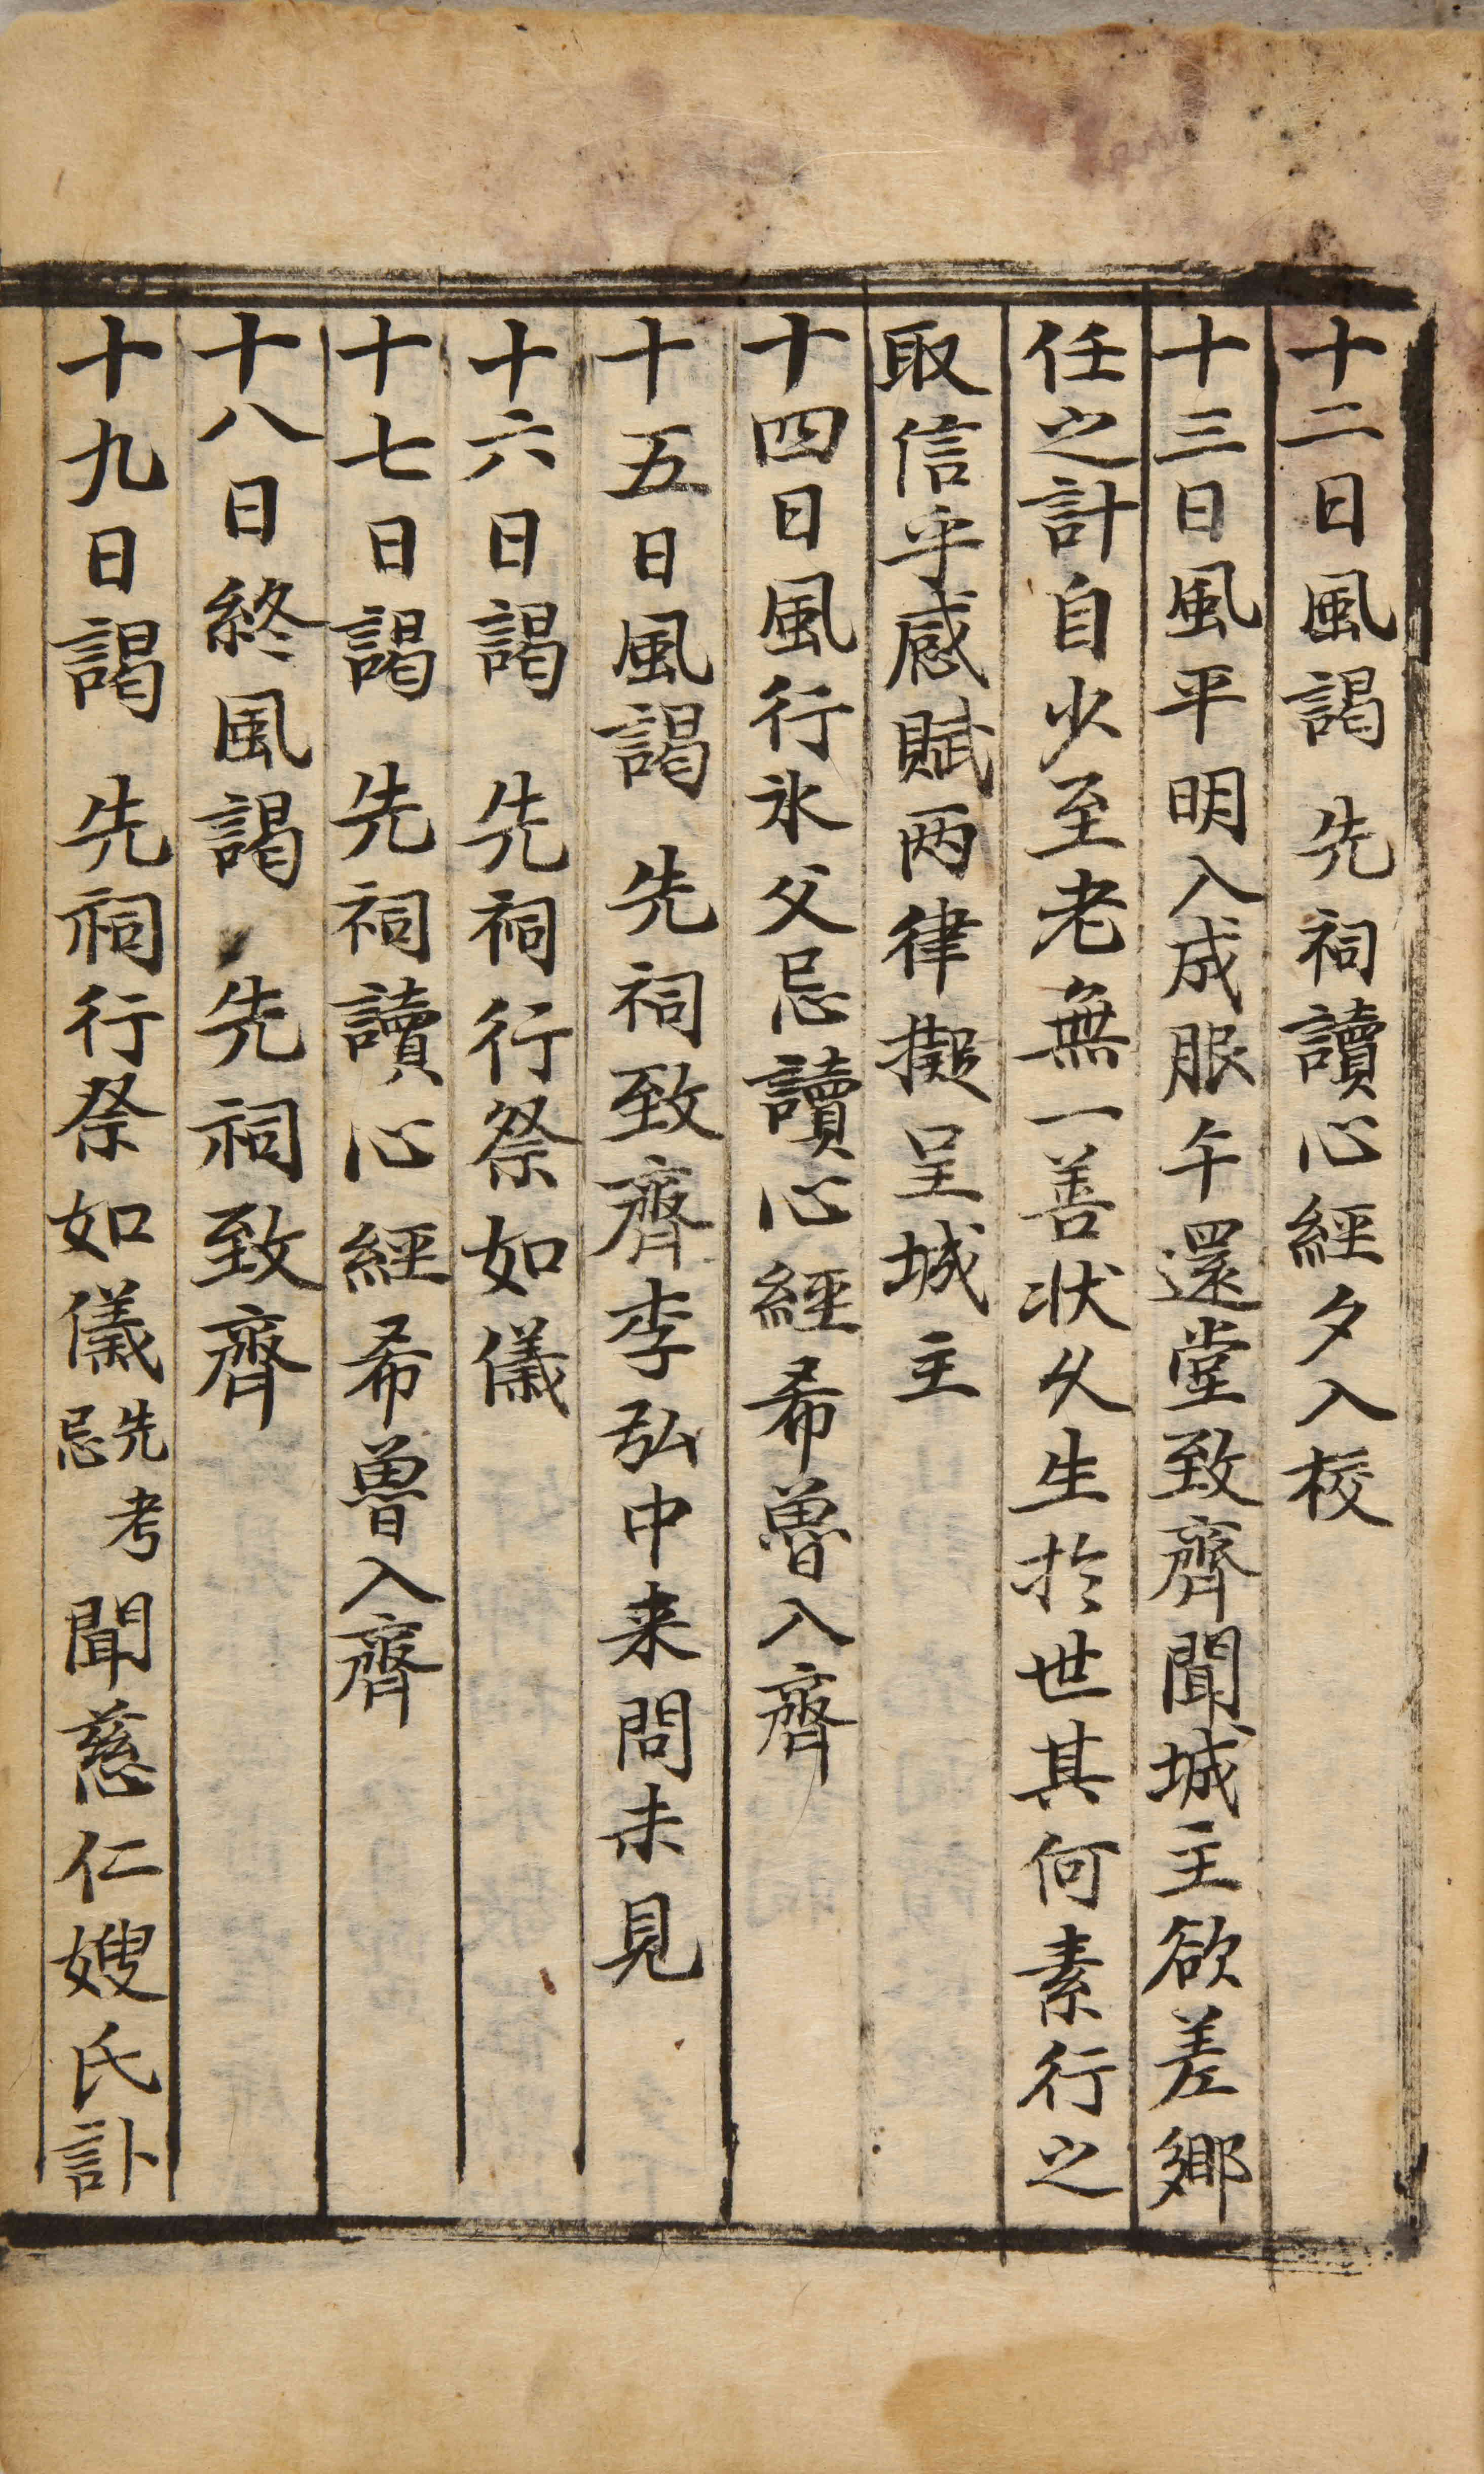 十二日風謁 先祠讀心經夕入校
十三日風平明入成服午還堂致齊聞城主欲差鄕
任之計自少至老無一善状久生於世其何素行之
取信乎感賦两律擬呈城主
十四日風行氷父忌讀心經希魯入齊
十五日風謁 先祠致齊李弘中来問未見
十六日謁 先祠行祭如儀
十七日謁 先祠讀心經希魯入齊
十八日終風謁 先祠致齊
十九日謁 先祠行祭如儀先考忌聞慈仁嫂氏訃